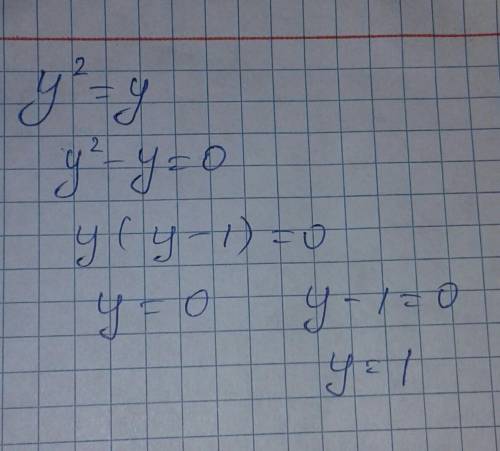 y² = y
y² - y = 0
y ( y - 1) = 0
y = 0 y - 1 = 0
y = 1